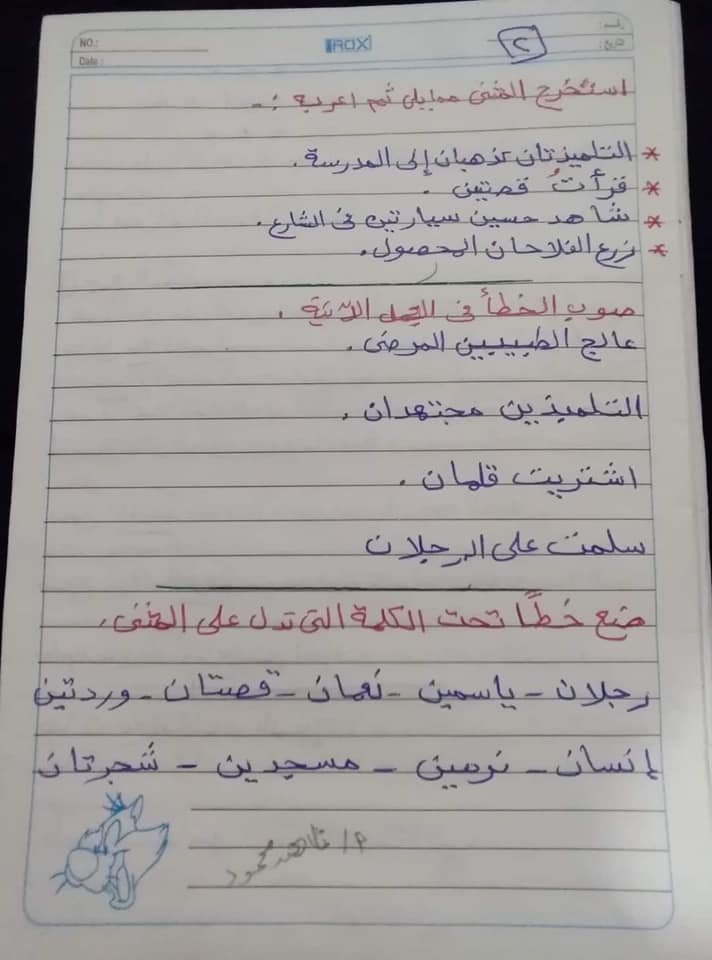 رقم:
تاريخ:
NO.:
Date :
ROXI
٢
استخرج المثنى ممايلى ثم اعرب :-
* التلميذتان تذهبان إلى المدرسة .
* قرأتُ قصتين .
* شاهد حسين سيارتين فى الشارع .
* زرع الفلاحان المحصول .
صوب الخطأ فى الجمل الآتية .
عالج الطبيبين المرضى .
التلميذين مجتهدان .
اشتريت قلمان .
سلمت على الرجلان
ضع خطًا تحت الكلمة التى تدل على المثنى .
رجلان - ياسمين - نعمان - قصتان - وردتين
إنسان - نرمين - مسجدين - شجرتان
م/ ناهد محمود